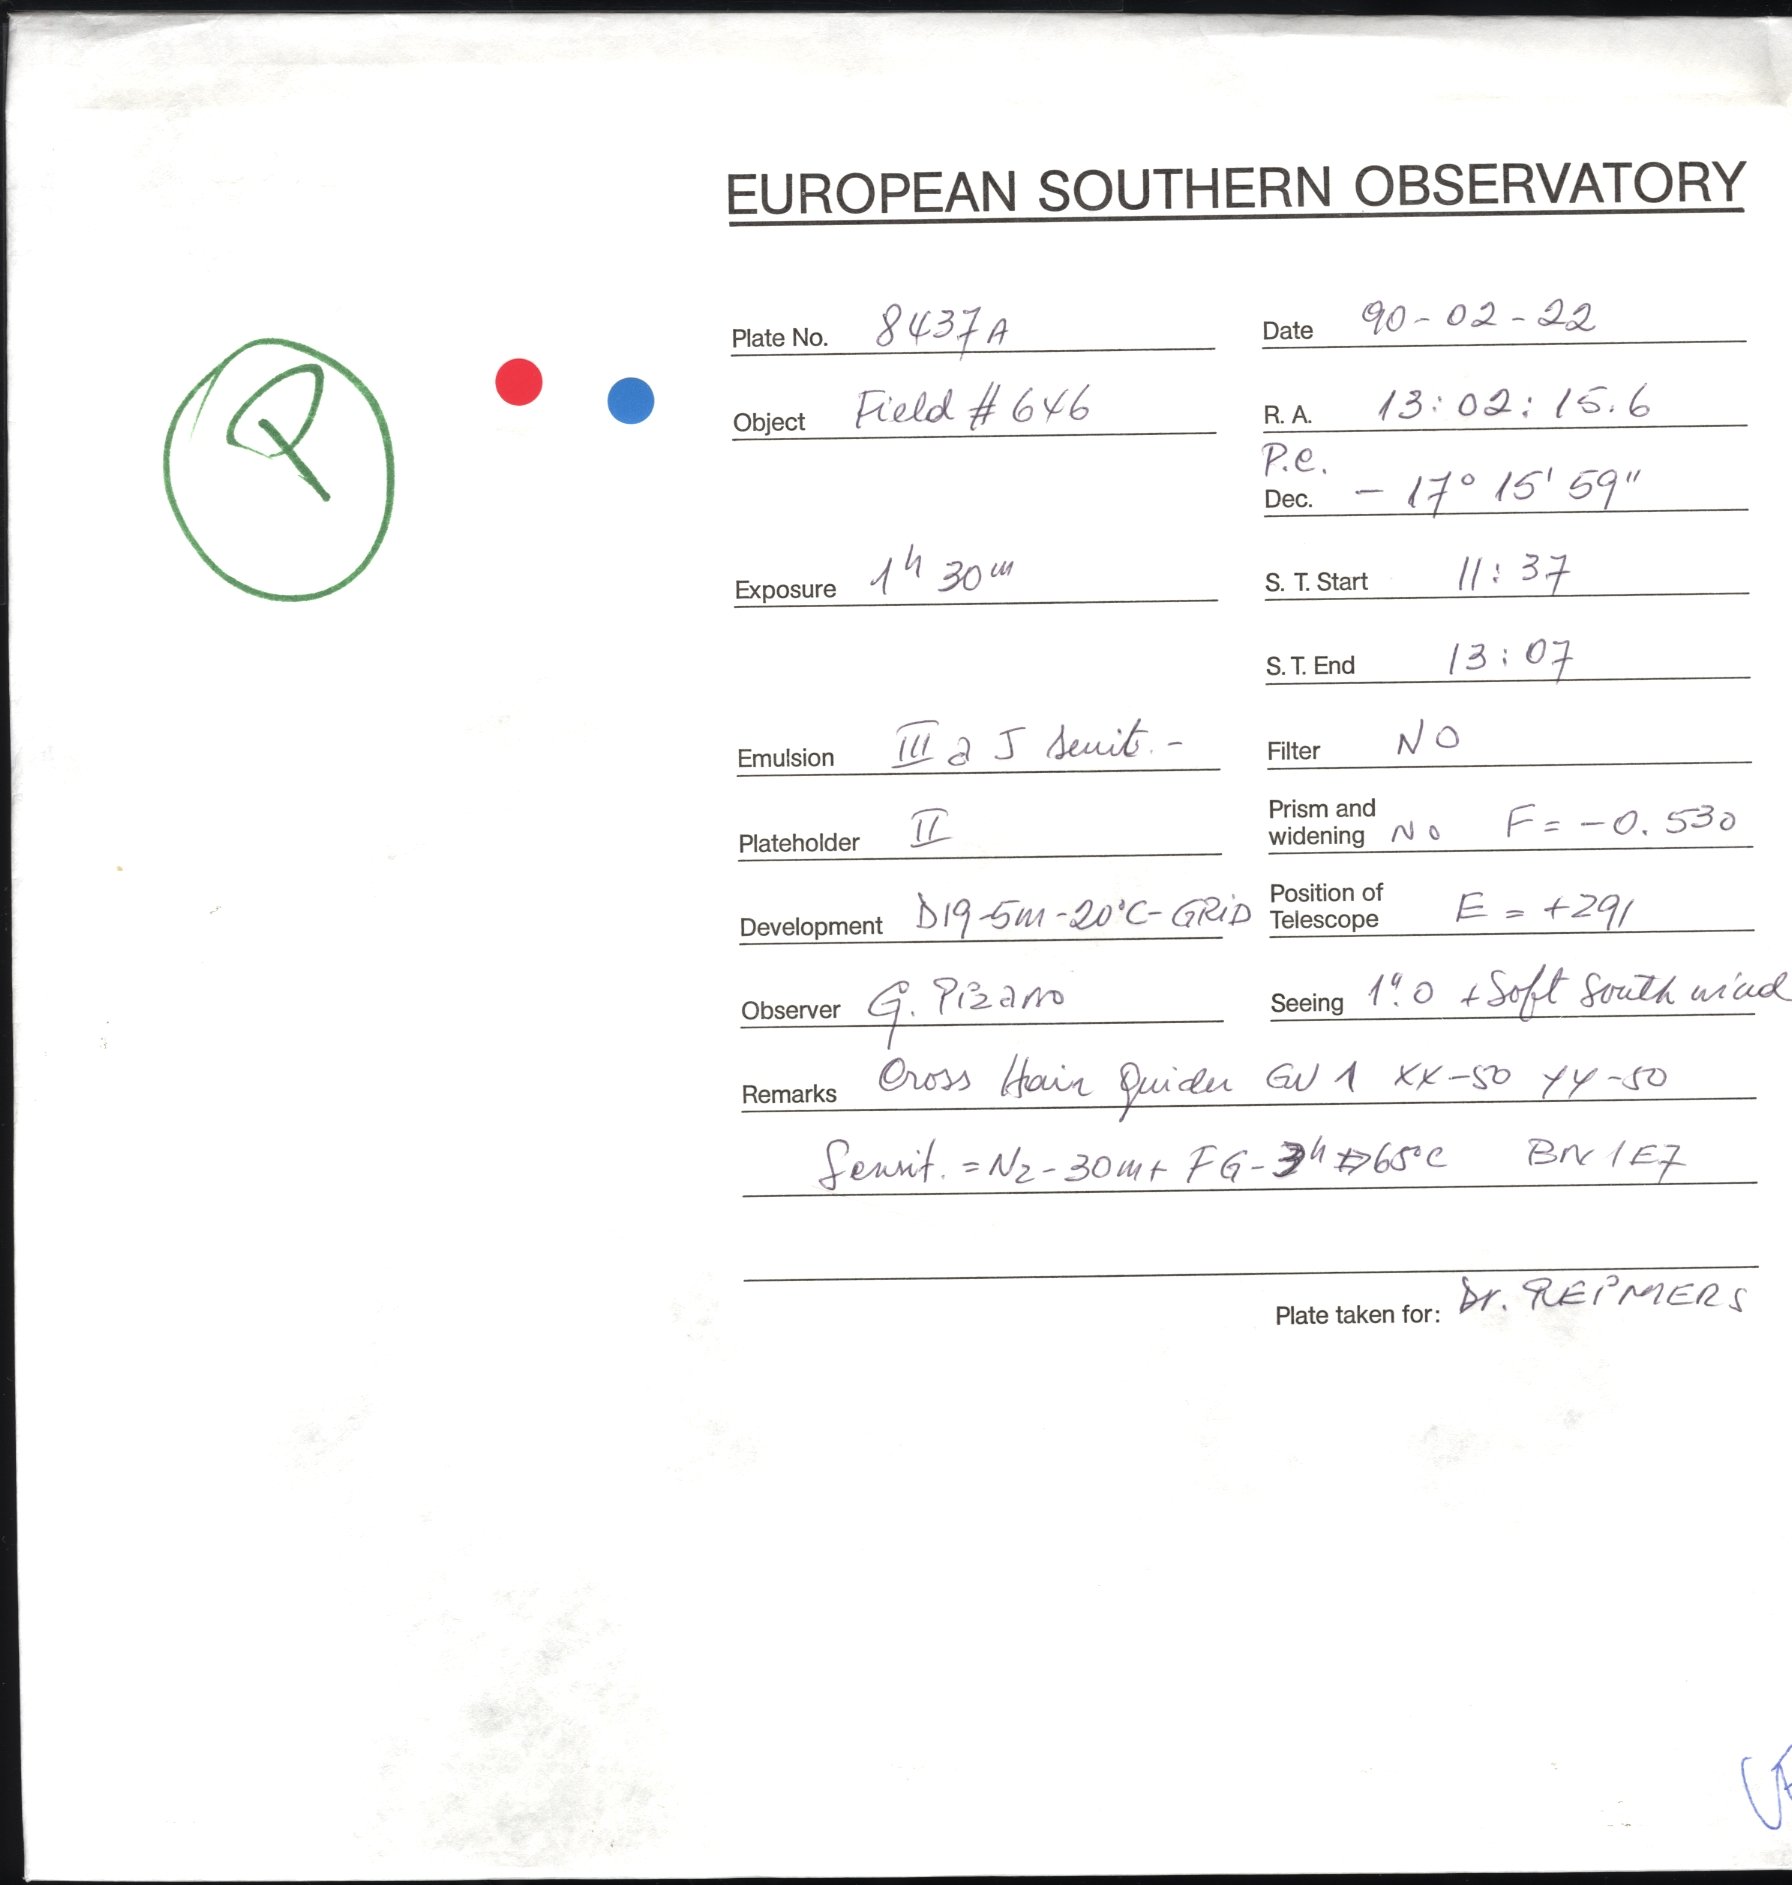 EUROPEAN SOUTHERN OBSERVATORY
Plate No. 8437A Date 90-02-22
Object Field # 646 R. A. 13:02:15.6
P.e.
Dec. - 17° 15' 59"
Exposure 1h 30m S. T. Start 11:37
S. T. End 13:07
Emulsion III a J sensit. - Filter NO
Plateholder II Prism and widening No F = -0.530
Development D19-5m-20°C-GRiD Position of Telescope E = +291
Observer G. Pizarro Seeing 1".0 + Soft South wind
Remarks Cross Hair Guider GV 1 XX-50 YY-50
Sensit. = N2-30m+ FG-3h 65°C BN 1E7
Plate taken for: Dr. REiMERS